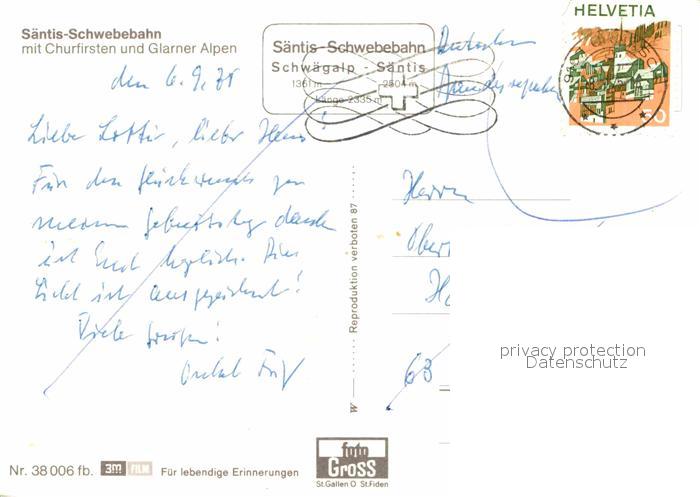 Säntis-Schwebebahn
mit Churfirsten und Glarner Alpen
Säntis-Schwebebahn
Schwägalp Säntis
1361 m 2504 m
Länge 2335 m
HELVETIA
50
den 6.9.
Liebe Lottir, lieber Hans!
Für den Glückwunsch zu
meinem Geburtstag danke
ich Euch herzlich. Das
Licht ist ausgezeichnet!
Viele Grüsse!
Onkel
Bundesrepublik
Herrn
68
Reproduktion verboten 87
privacy protection
Datenschutz
Nr. 38 006 fb. 3m FILM Für lebendige Erinnerungen
foto
GROSS
St.Gallen O St.Fiden